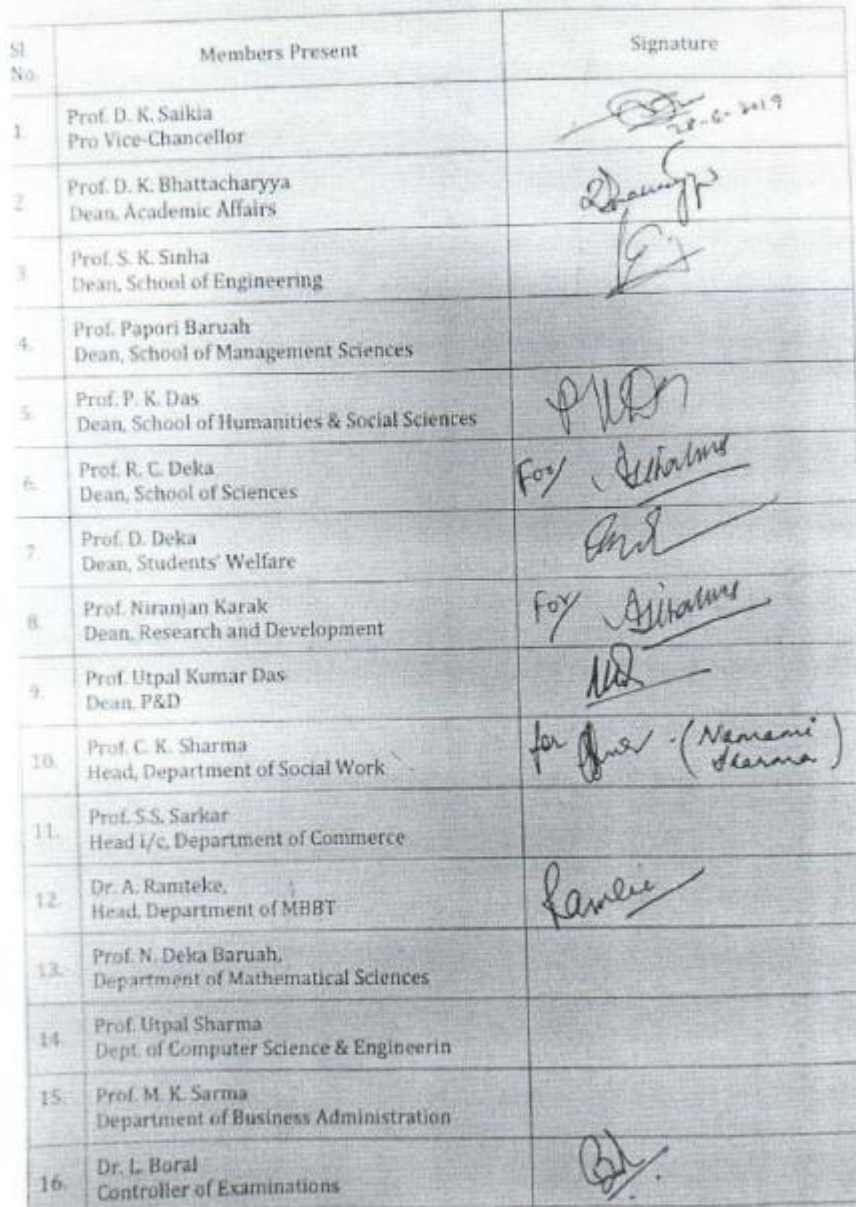 Sl. No.
Members Present
Signature
1.
Prof. D. K. Saikia
Pro Vice-Chancellor
28-6-2019
2
Prof. D. K. Bhattacharyya
Dean, Academic Affairs
3
Prof. S. K. Sinha
Dean, School of Engineering
4.
Prof. Papori Baruah
Dean, School of Management Sciences
5.
Prof. P. K. Das
Dean, School of Humanities & Social Sciences
PKDas
6.
Prof. R. C. Deka
Dean, School of Sciences
For
7.
Prof. D. Deka
Dean, Students' Welfare
8.
Prof. Niranjan Karak
Dean, Research and Development
For
9.
Prof. Utpal Kumar Das
Dean, P&D
10.
Prof. C. K. Sharma
Head, Department of Social Work
for (Namami
Sharma)
11.
Prof. S.S. Sarkar
Head i/c, Department of Commerce
12.
Dr. A. Ramteke,
Head, Department of MBBT
13.
Prof. N. Deka Baruah,
Department of Mathematical Sciences
14.
Prof. Utpal Sharma
Dept. of Computer Science & Engineerin
15.
Prof. M. K. Sarma
Department of Business Administration
16.
Dr. L. Boral
Controller of Examinations